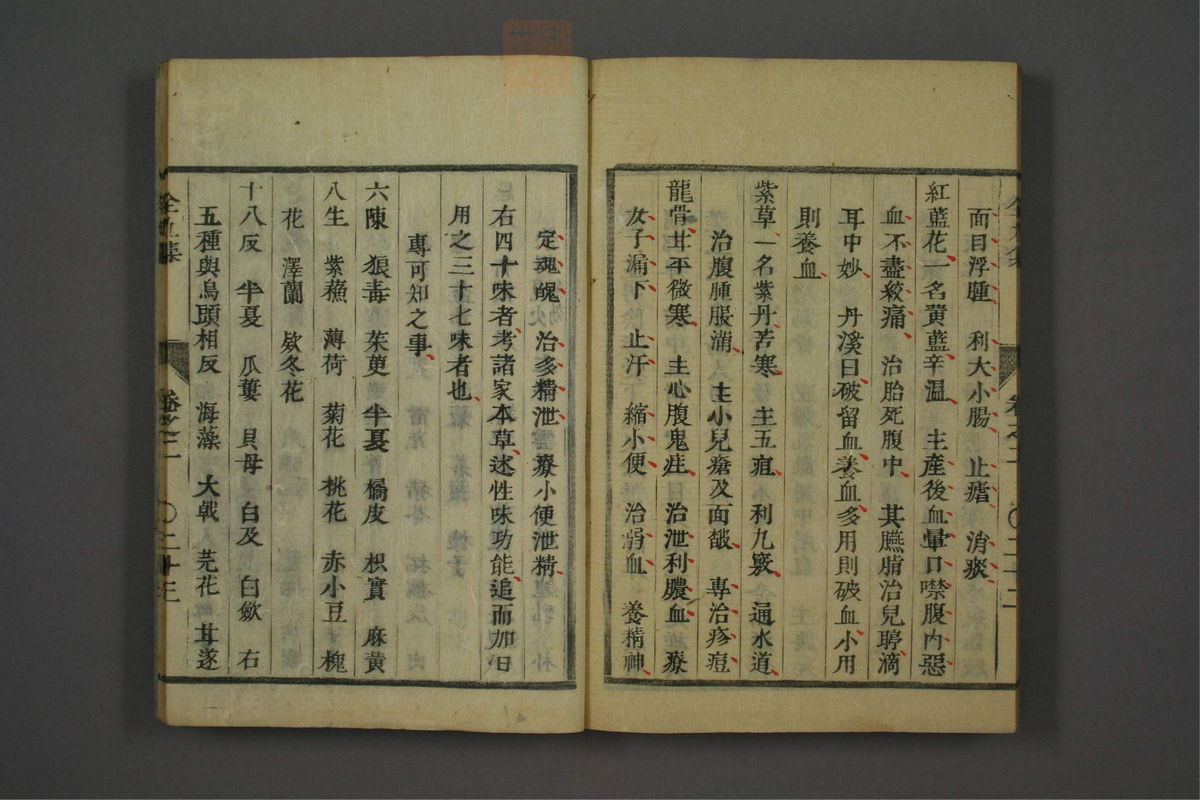 面目浮腫　利大小腸　止瘧　消痰
紅藍花一名黃藍辛温　主產後血暈口噤腹内惡
血不盡絞痛　治胎死腹中　其臙脂治兒聤滴
耳中妙　丹溪曰破留血養血多用則破血小用
則養血
紫草一名紫丹苦寒　主五疸　利九竅　通水道
治腹腫脹滿　主小兒瘡及面皶　專治疹痘
龍骨甘平微寒　主心腹鬼疰　治泄利膿血　療
女子漏下　止汗　縮小便　治溺血　養精神
定魂魄　治多精泄　療小便泄精
右四十味者考諸家本草述性味功能追而加日
用之三十七味者也
專可知之事
六陳　狼毒　茱萸　半夏　橘皮　枳實　麻黃
八生　紫蘓　薄荷　菊花　桃花　赤小豆　槐
花　澤蘭　欵冬花
十八反　半夏　瓜蔞　貝母　白及　白歛　右
五種與烏頭相反　海藻　大戟　芫花　甘遂
卷之二　〇二十三